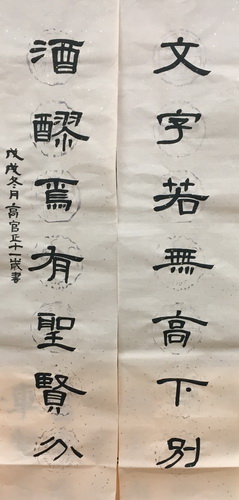 文字若無高下別
酒醪焉有聖賢分
戊戌冬月高官正十一歲書